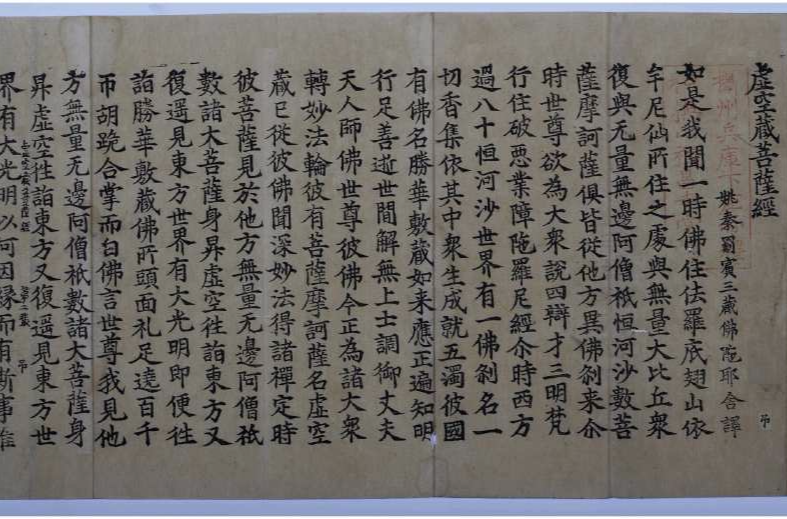 虛空藏菩薩經
姚秦罽賓三藏佛陁耶舍譯
如是我聞一時佛住佉羅底翅山依
牟尼仙所住之處與無量大比丘衆
復與无量無邊阿僧祇恒河沙數菩
薩摩訶薩俱皆從他方異佛剎来尒
時世尊欲為大衆說四辯才三明梵
行住破惡業障陁羅尼經尒時西方
過八十恒河沙世界有一佛剎名一
切香集依其中衆生成就五濁彼國
有佛名勝華敷藏如来應正遍知明
行足善逝世間解無上士調御丈夫
天人師佛世尊彼佛今正為諸大衆
轉妙法輪彼有菩薩摩訶薩名虛空
藏已從彼佛聞深妙法得諸禪定時
彼菩薩見於他方無量无邊阿僧祇
數諸大菩薩身昇虛空往詣東方又
復遥見東方世界有大光明即便往
詣勝華敷藏佛所頭面礼足遶百千
帀胡跪合掌而白佛言世尊我見他
方無量无邊阿僧祇數諸大菩薩身
昇虛空往詣東方又復遥見東方世
界有大光明以何因緣而有斯事唯